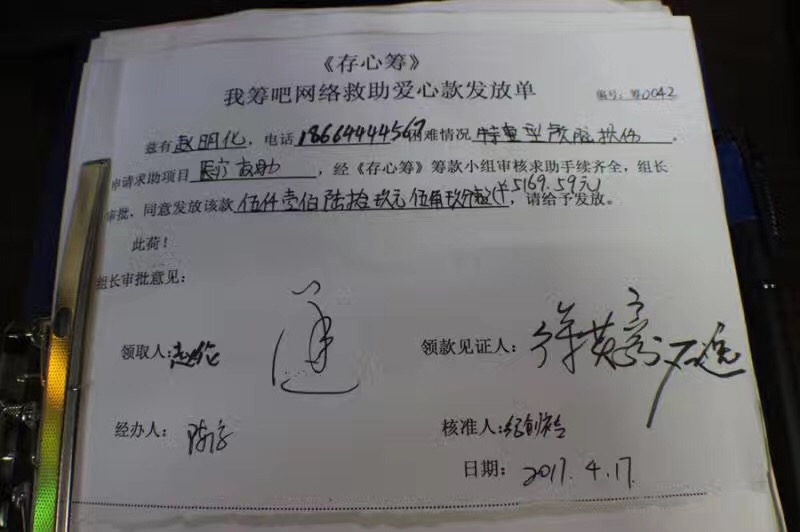 《存心筹》
我筹吧网络救助爱心款发放单
编号：筹0042
兹有赵明化，电话18664444567困难情况特重型颅脑损伤
申请求助项目医疗救助，经《存心筹》筹款小组审核求助手续齐全，组长
审批，同意发放该款伍仟壹佰陆拾玖元伍角玖分整(¥5169.59元)，请给予发放。
此荷！
组长审批意见：
领取人：
领款见证人：
经办人：
核准人：
日期：2017.4.17